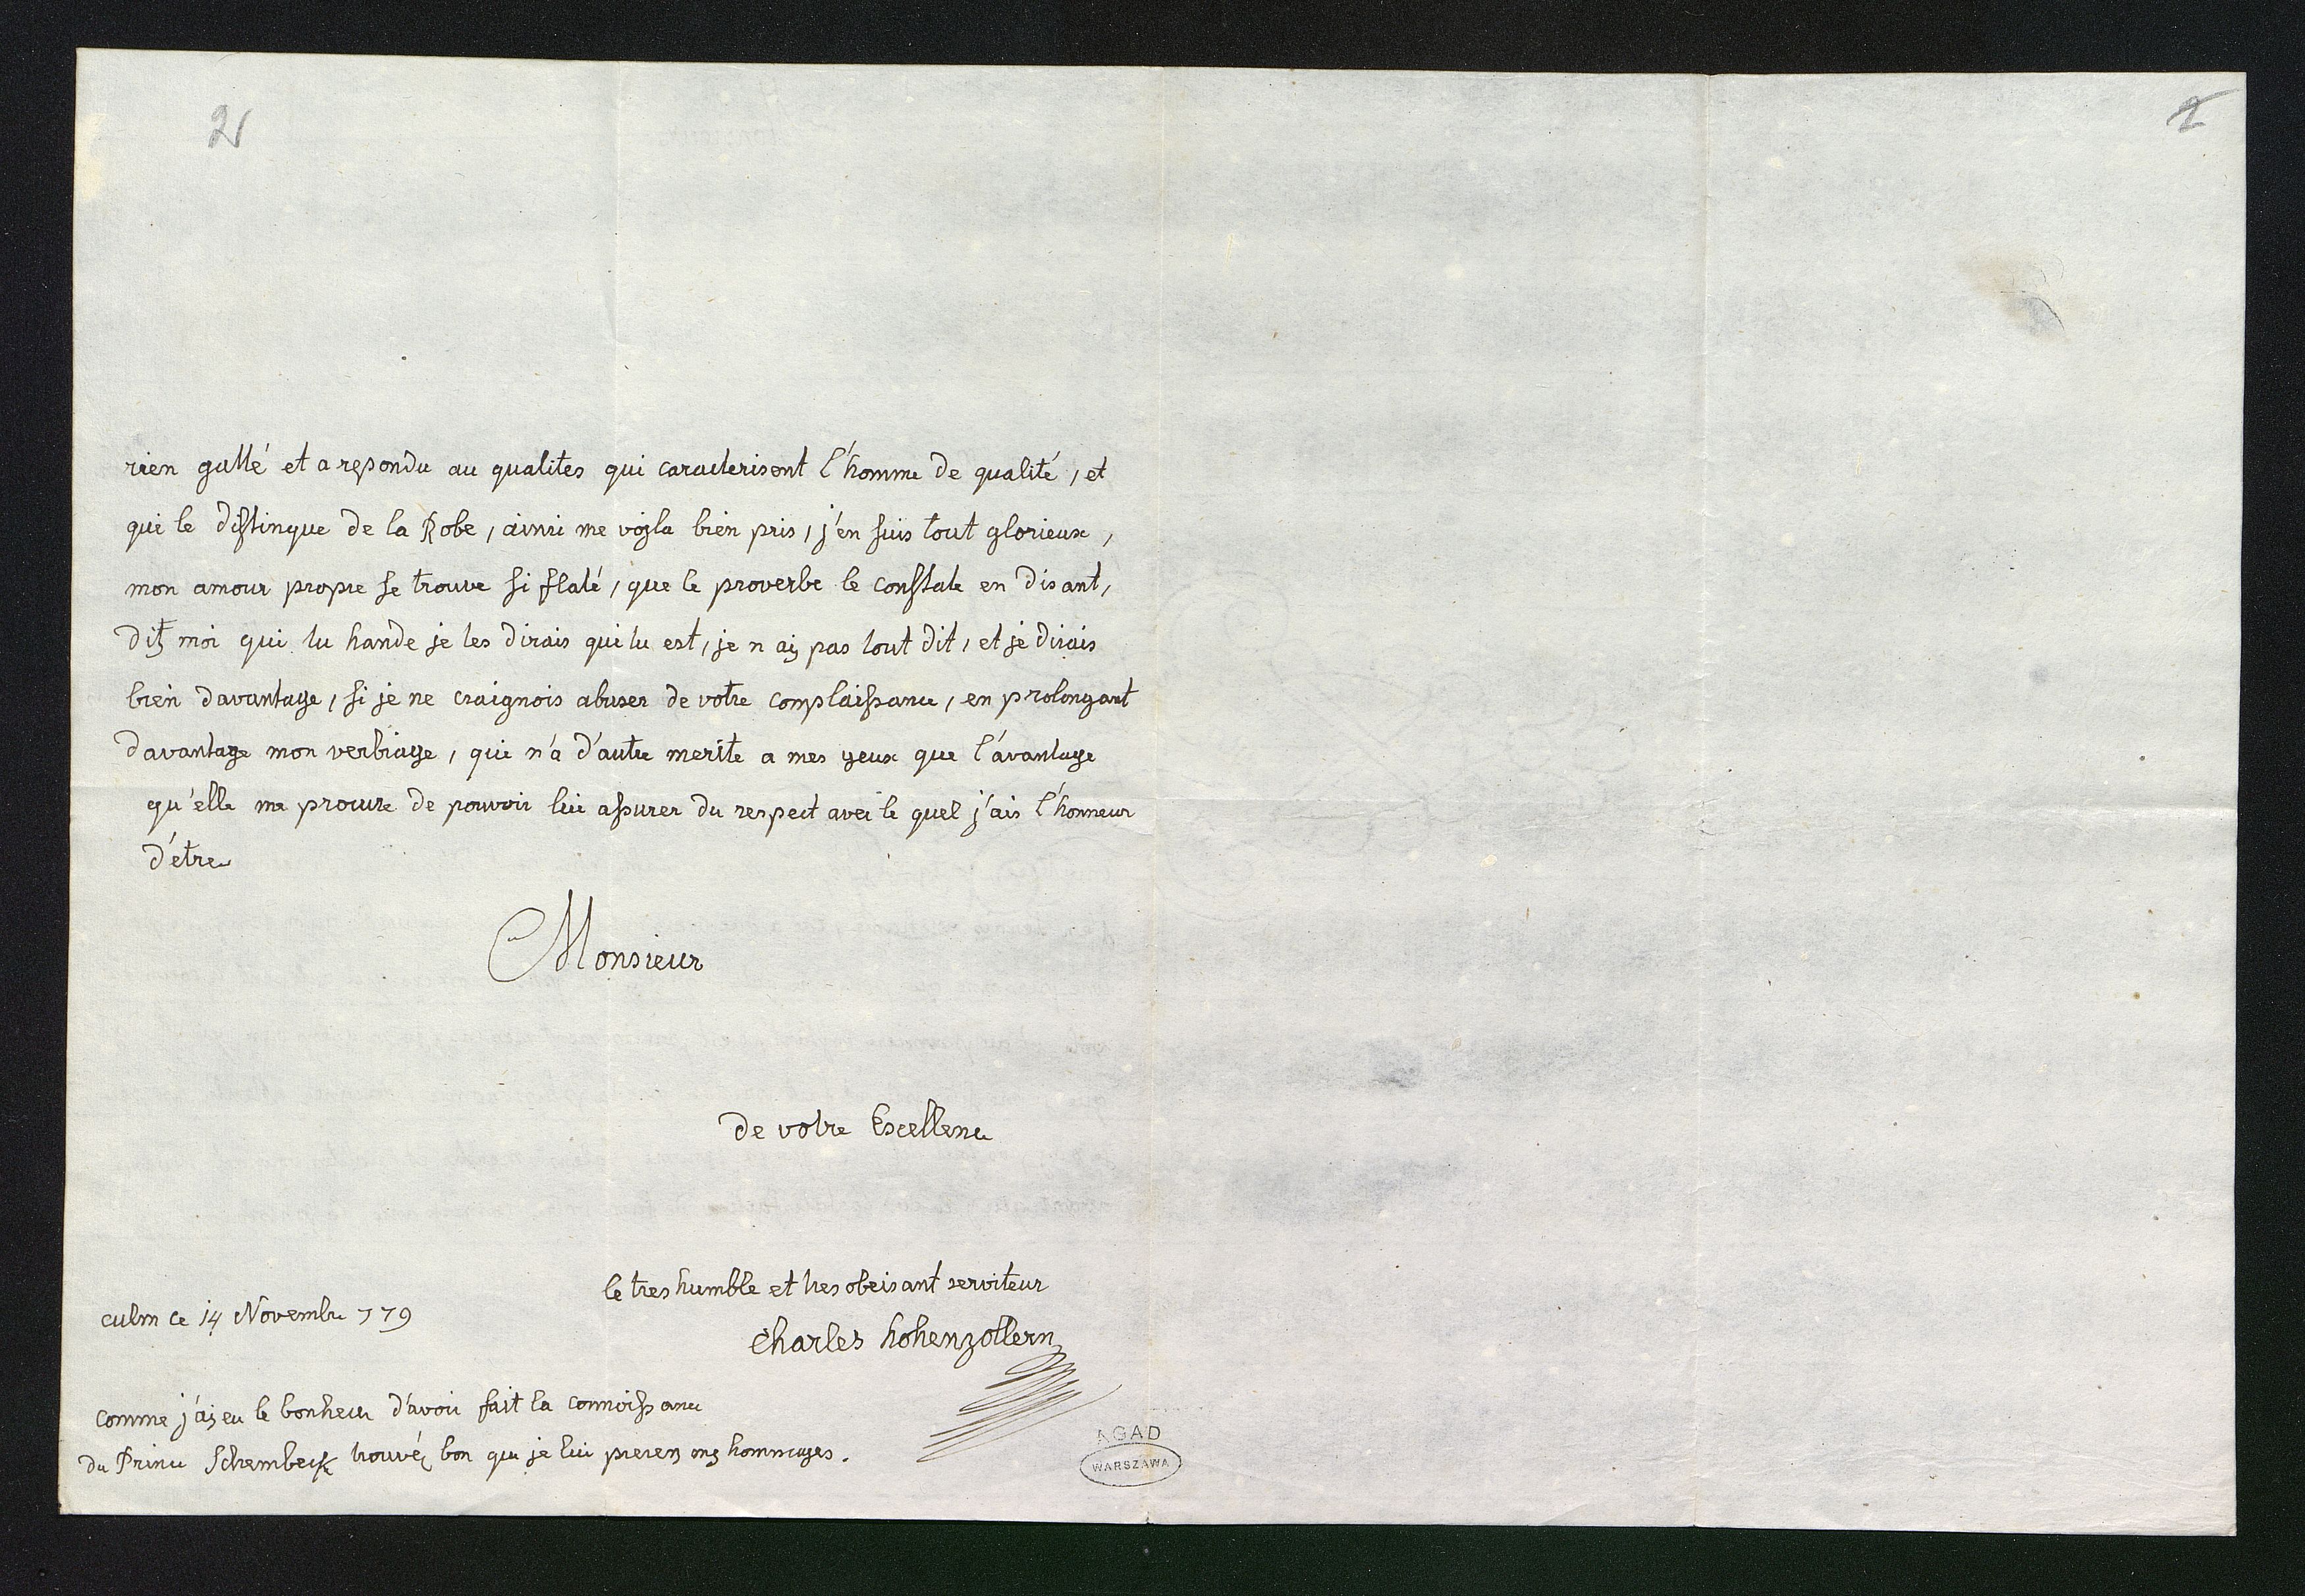 2
2
rien gatté et a respondu au qualites qui caracterisent l'homme de qualité, et
qui le distinque de la Robe, ainsi me voyla bien pris, j'en suis tout glorieux,
mon amour propre se trouve si flaté, que le proverbe le constate en disant,
dits moi qui tu hande je tes dirais qui tu est, je n ay pas tout dit, et je dirais
bien davantage, si je ne craignois abuser de votre complaissance, en prolongant
davantage mon verbiage, qui n'a d'autre merite a mes yeux que l'avantage
qu'elle me procure de pouvoir lui assurer du respect avec le quel j'ais l'honneur
d'etre
Monsieur
de votre Excellence
le tres humble et tres obeisant serviteur
culm ce 14 Novembre 779
Charles hohenzollern
comme j'ay eu le bonheur d'avoir fait la connoissance
du Prince Schembeck trouvéz bon que je lui mes hommages.
AGAD
WARSZAWA